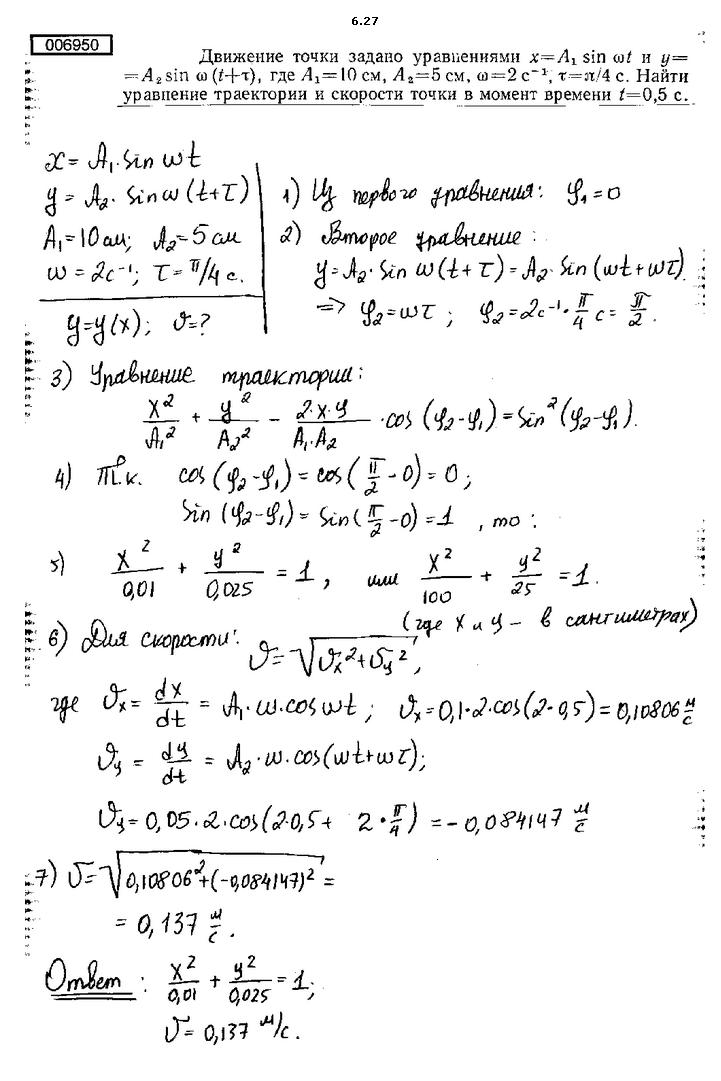 6.27
006950
Движение точки задано уравнениями x=A₁ sin ωt и y=
=A₂ sin ω (t+τ), где A₁=10 см, A₂=5 см, ω=2 с⁻¹, τ=π/4 с. Найти
уравнение траектории и скорости точки в момент времени t=0,5 с.
x = A₁·sin ωt
y = A₂· sin ω (t+τ)
A₁=10см; A₂=5 см
ω = 2с⁻¹; τ = π/4 с.
y=y(x); υ=?
1) Из первого уравнения: φ₁=0
2) Второе уравнение:
y=A₂·sin ω(t+τ)=A₂·sin(ωt+ωτ)
=> φ₂=ωτ; φ₂=2с⁻¹·π/4 с= π/2.
3) Уравнение траектории:
x²/A₁² + y²/A₂² - 2·x·y/A₁·A₂ ·cos (φ₂-φ₁)=sin²(φ₂-φ₁).
4) Т.к. cos(φ₂-φ₁)=cos(π/2-0)=0;
sin (φ₂-φ₁)= sin(π/2-0)=1, то:
5) x²/0,01 + y²/0,025 = 1, или x²/100 + y²/25 =1.
(где x и y – в сантиметрах)
6) Для скорости: υ=√υₓ²+υᵧ²,
где υₓ= dx/dt = A₁·ω·cos ωt; υₓ=0,1·2·cos(2·0,5)=0,10806 м/с
υᵧ = dy/dt = A₂·ω·cos(ωt+ωτ);
υᵧ=0,05·2·cos(2·0,5+ 2·π/4) =-0,084147 м/с
7) υ=√0,10806²+(-0,084147)² =
= 0,137 м/с.
Ответ: x²/0,01 + y²/0,025 =1;
υ= 0,137 м/с.